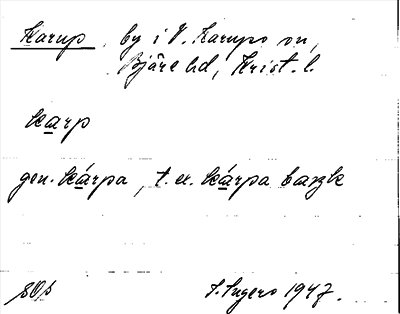 Karup, by i V. Karups sn,
Bjäre hd, Krist. l.
karp
gen. kárpa, t. ex. kárpa backe
S. Ingers 1947.